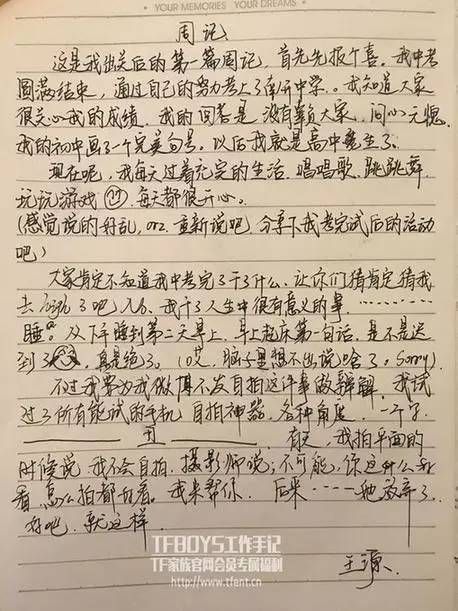 YOUR MEMORIES YOUR DREAMS
周记
这是我出关后的第一篇周记，首先先报个喜。我中考
圆满结束，通过自己的努力考上了南开中学。我知道大家
很关心我的成绩，我的回答是没有辜负大家，问心无愧
我的初中画了一个完美句号。以后我就是高中生了。
现在呢，我每天过着充实的生活，唱唱歌，跳跳舞
玩玩游戏 每天都很开心。
(感觉说的好乱，orz.重新说吧，分享下我考完试后的活动
吧)
大家肯定不知道我中考完了干了什么，让你们猜肯定猜我
去 了吧 我干了人生中很有意义的事………
睡。从下午睡到第二天早上，早上起床第一句话，是不是迟
到了 真是绝了。(哎，脑子里想不出说啥了。Sorry)
不过我要为我微博不发自拍这件事做辩解，我试
过了所有能试的手机，自拍神器，各种角度，一个字
丑 有天，我拍平面的
时候说我不会自拍，摄影师说：不可能，你这么好
看怎么拍都好看。我来帮你，后来……她放弃了
好吧，就这样
王源.
TFBOYS工作手记
TF家族官网会员专属福利
http://www.tfent.cn